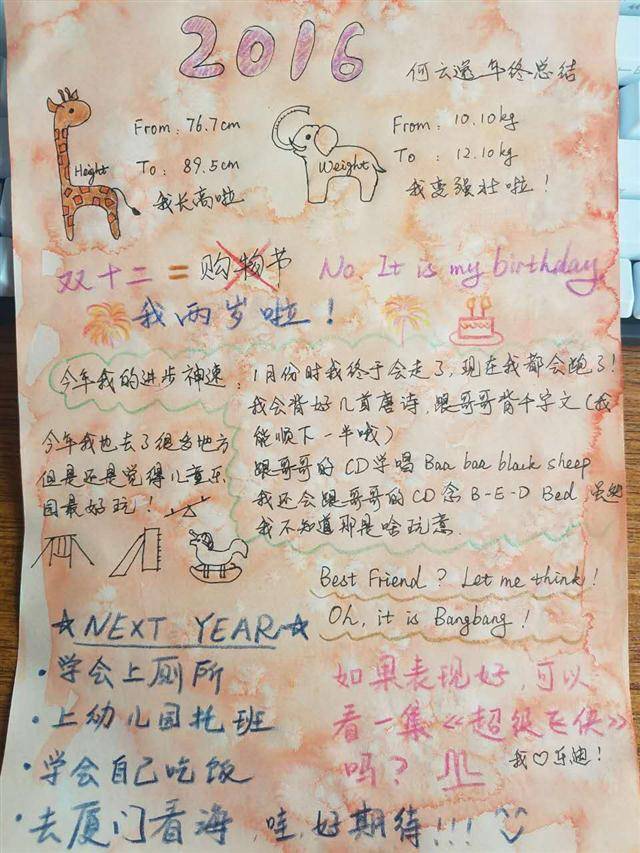 2016
何云逸年终总结
From: 76.7cm
Height
To: 89.5cm
我长高啦
From: 10.10kg
Weight
To: 12.10kg
我变强壮啦！
双十二 = 购物节 No. It is my birthday
我两岁啦！
今年我的进步神速：
1月份时我终于会走了，现在我都会跑了！
我会背好几首唐诗，跟哥哥背千字文（我
能顺下一半哦）
跟哥哥的CD学唱 Baa baa black sheep
我还会跟哥哥的CD念 B-E-D Bed，虽然
我不知道那是啥玩意.
今年我也去了很多地方
但是还是觉得儿童乐
园最好玩！
Best Friend? Let me think!
Oh, it is Bangbang!
NEXT YEAR
·学会上厕所
·上幼儿园托班
·学会自己吃饭
·去厦门看海，哇，好期待!!!
如果表现好，可以
看一集《超级飞侠》
吗？
我♡乐迪！